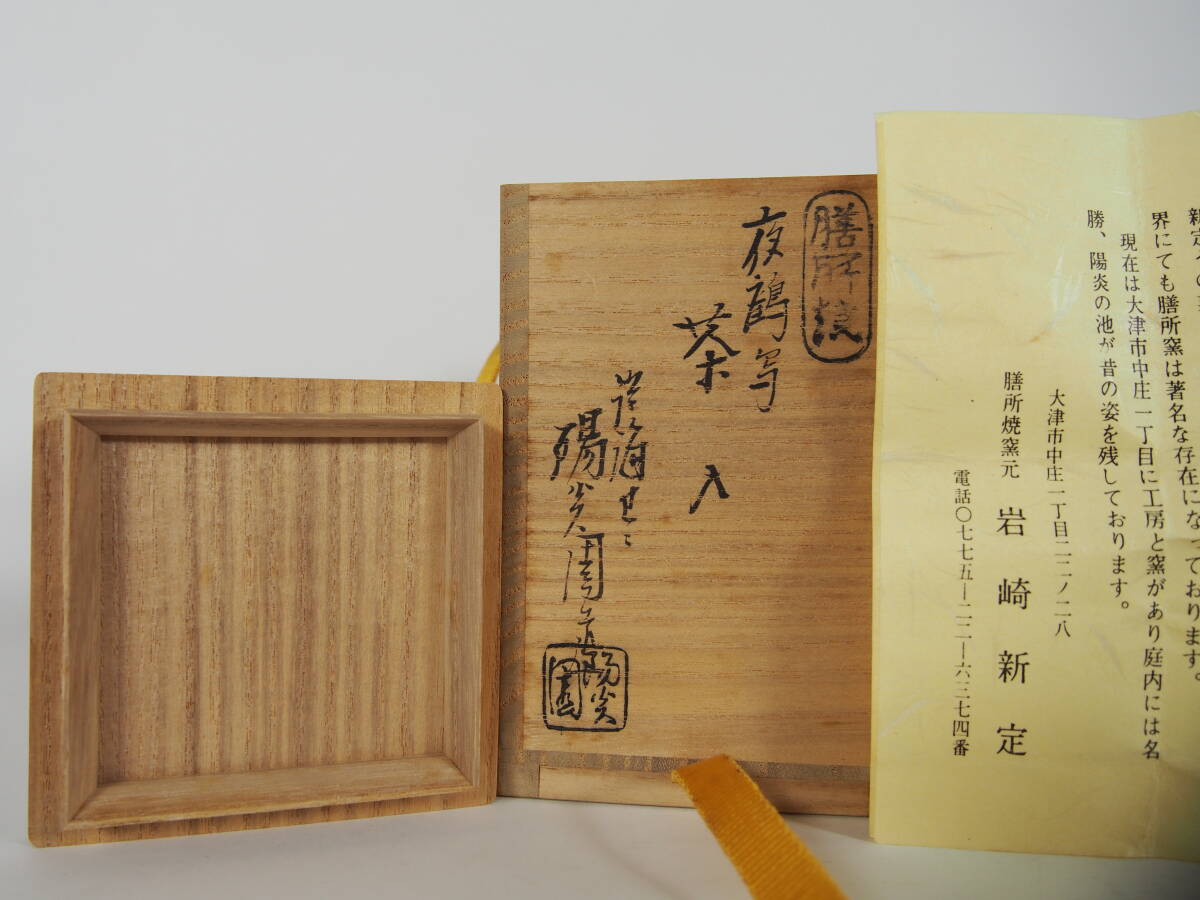 膳所焼
夜鶴写
茶入
陽炎園造
陽炎園
新定
界にても膳所窯は著名な存在になっております。
現在は大津市中庄一丁目に工房と窯があり庭内には名
勝、陽炎の池が昔の姿を残しております。
大津市中庄一丁目二二ノ二八
膳所焼窯元 岩崎新定
電話〇七七五―二二―六三七四番